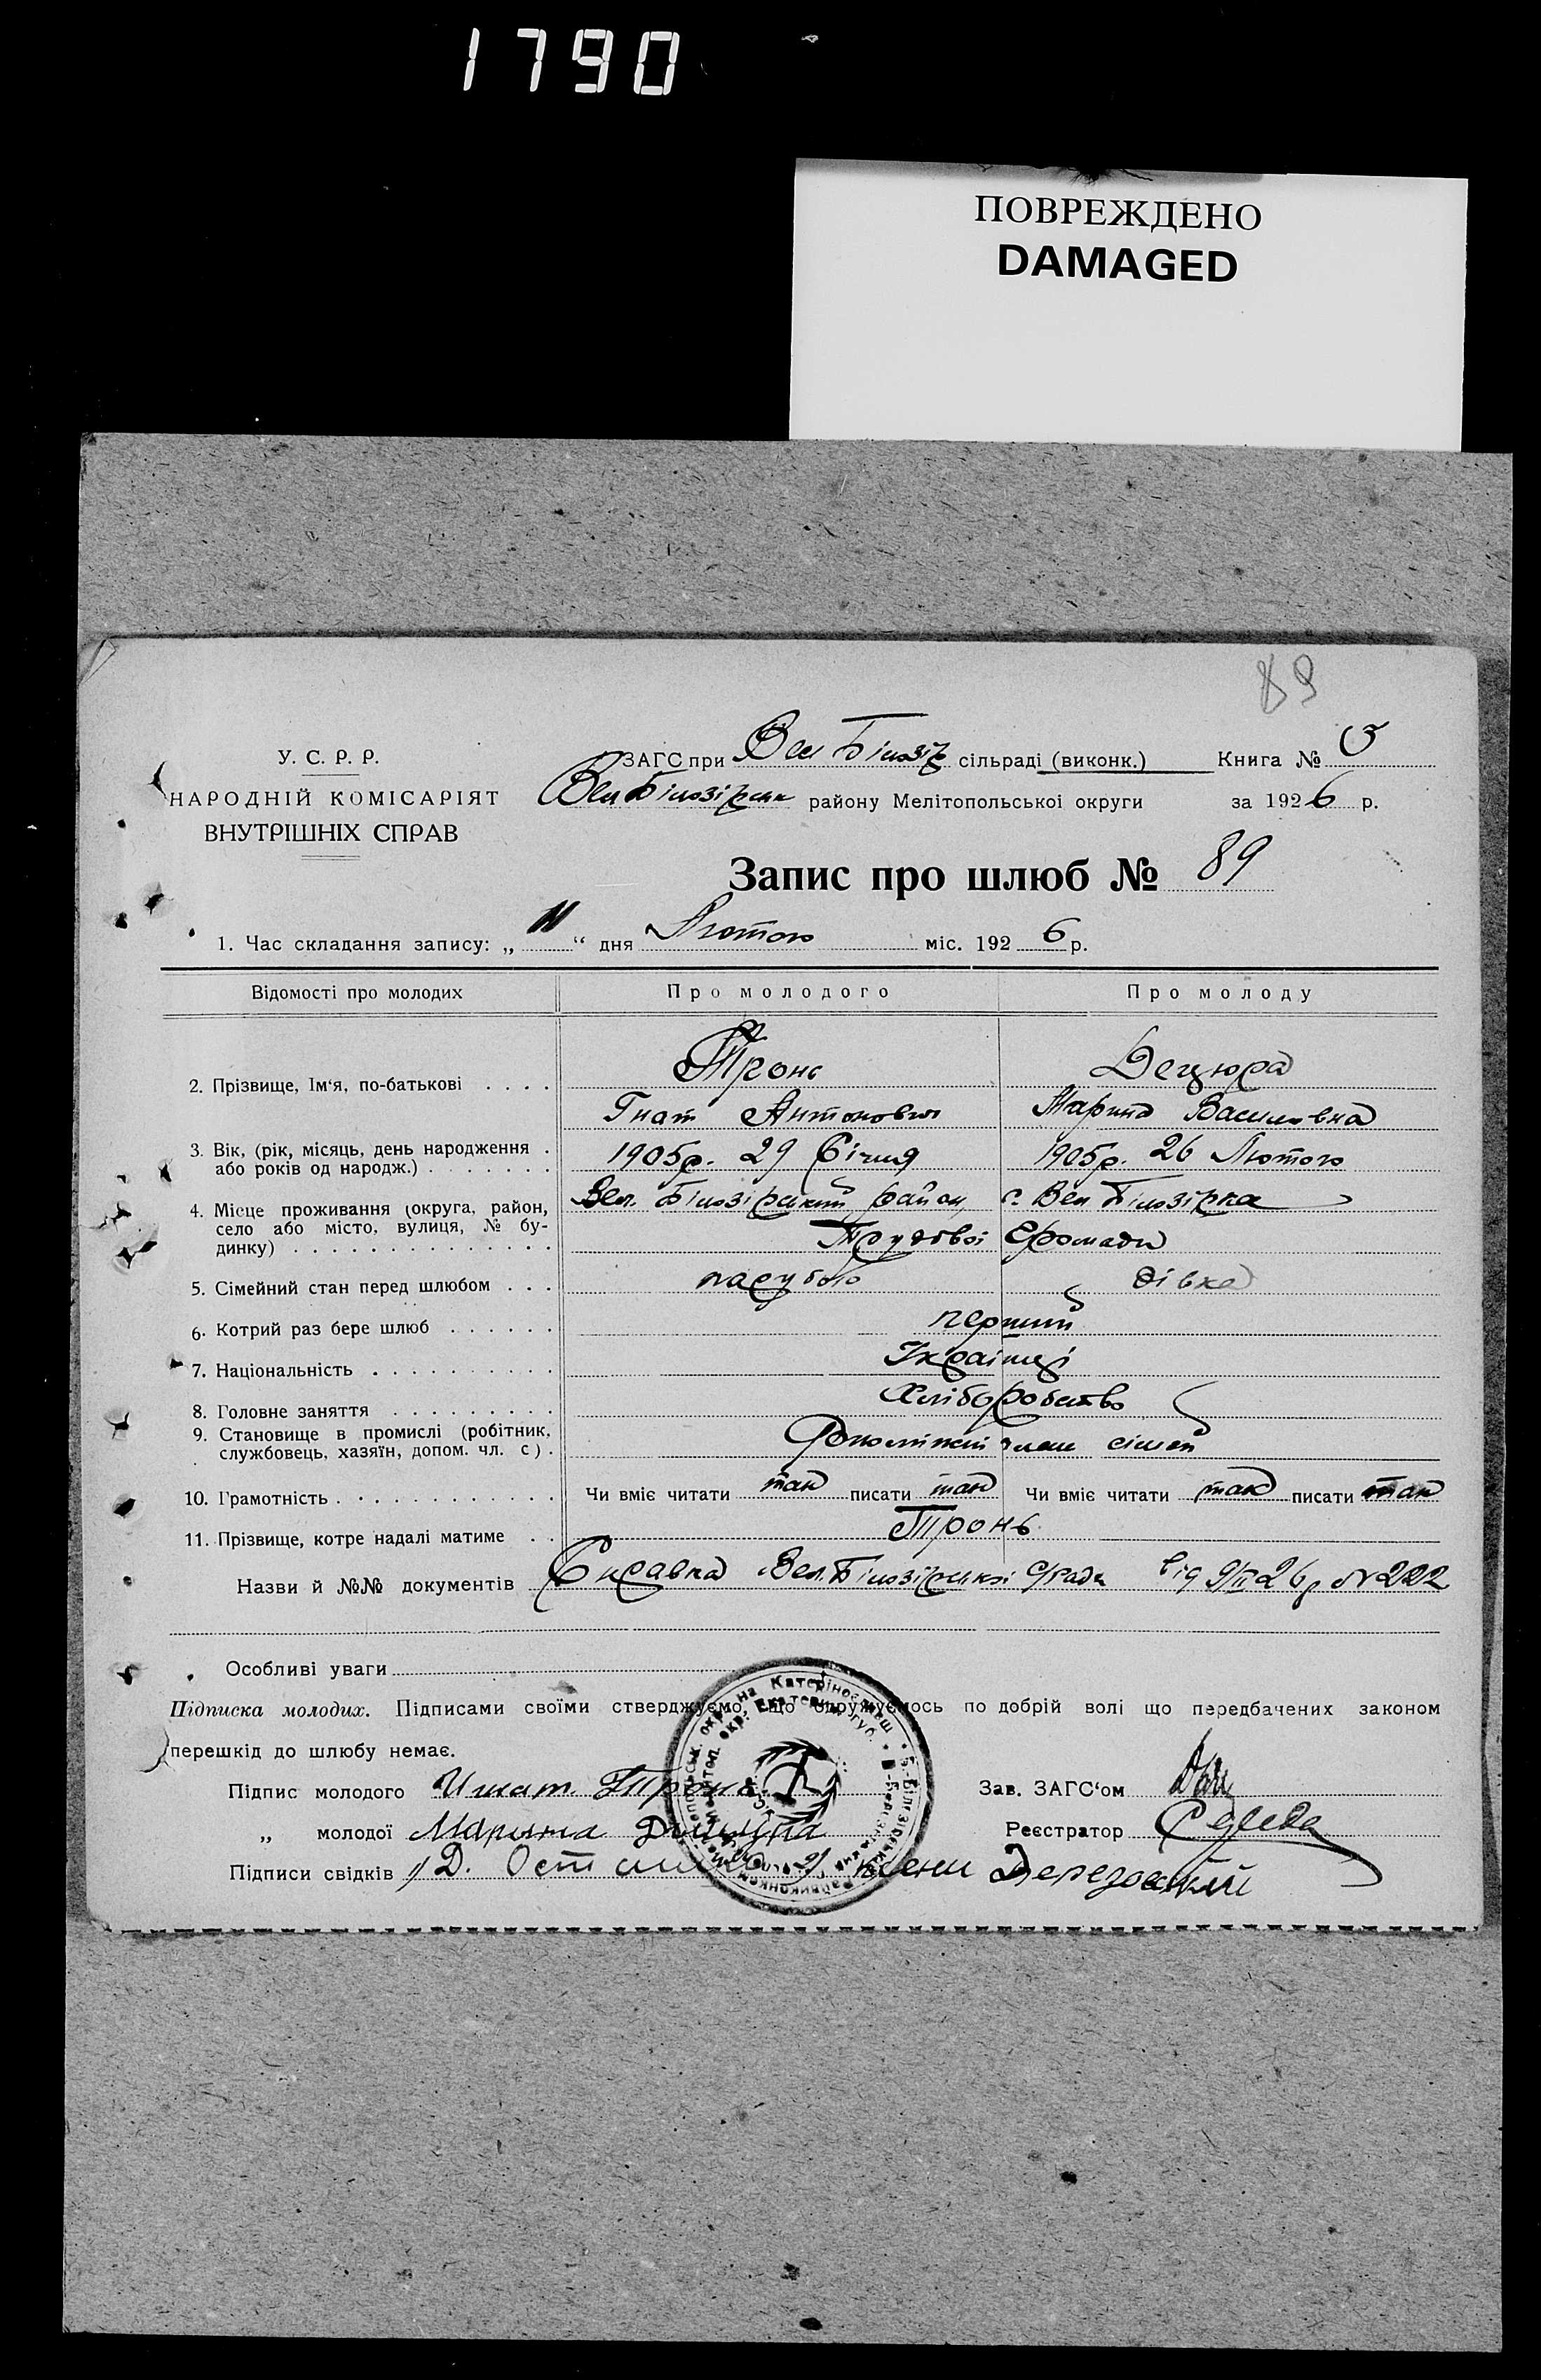 1790
ПОВРЕЖДЕНО
DAMAGED
89
У. С. Р. Р.
НАРОДНІЙ КОМІСАРІЯТ
ВНУТРІШНІХ СПРАВ
ЗАГС при Вел Білозір сільраді (виконк.) Книга № 3
Вел Білозірськ району Мелітопольської округи за 1926 р.
Запис про шлюб № 89
1. Час складання запису: „11“ дня Лютого міс. 1926 р.
Відомості про молодих Про молодого Про молоду
2. Прізвище, Ім‘я, по-батькові . . . . Тронь Децюра
Гнат Антонович Марина Василовна
3. Вік, (рік, місяць, день народження . 1905р. 29 Січня 1905р. 26 Лютого
або років од народж.) . . . . . . .
4. Місце проживання (округа, район, Вел. Білозірський район, с. Вел Білозірка
село або місто, вулиця, № бу-
динку) . . . . . . . . . . . . . . Трудової Громади
5. Сімейний стан перед шлюбом . . . парубок дівка
6. Котрий раз бере шлюб . . . . . . перший
7. Національність . . . . . . . . . . Українці
8. Головне заняття . . . . . . . . . Хліборобство
9. Становище в промислі (робітник,
службовець, хазяїн, допом. чл. с) . член сімей
10. Грамотність . . . . . . . . . . . . Чи вміє читати так писати так Чи вміє читати так писати так
11. Прізвище, котре надалі матиме . . Тронь
Назви й №№ документів Справка Вел. Білозірської с/ради від 9/II 26р №222
Особливі уваги
Підписка молодих. Підписами своїми стверджуємо, що одружуємось по добрій волі що передбачених законом
перешкід до шлюбу немає.
Підпис молодого Игнат Тронь Зав. ЗАГС‘ом
„ молодої Марина Реєстратор
Підписи свідків 1) Д. 2)